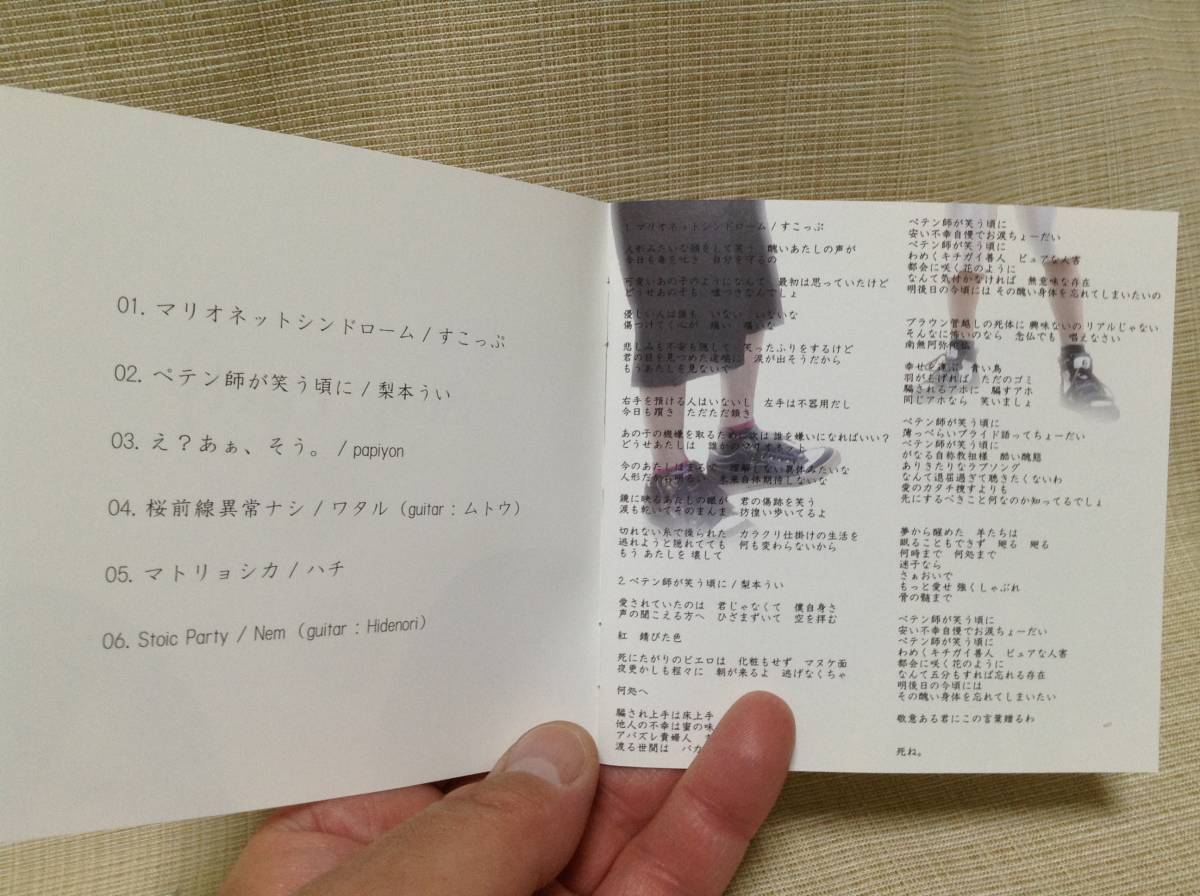 01. マリオネットシンドローム / すこっぷ
02. ペテン師が笑う頃に / 梨本うい
03. え？あぁ、そう。 / papiyon
04. 桜前線異常ナシ / ワタル（guitar : ムトウ）
05. マトリョシカ / ハチ
06. Stoic Party / Nem（guitar : Hidenori）
1.マリオネットシンドローム / すこっぷ
人形みたいな顔をして笑う 醜いあたしの声が
今日も毒を吐き 自分を守るの
可愛いあの子のようになんて 最初は思っていたけど
どうせあの子も 嘘つきなんでしょ
優しい人は誰も いない いないな
傷つけてく心が 痛い 痛いな
悲しみも不安も隠して 笑ったふりをするけど
君の目を見つめた途端に 涙が出そうだから
もうあたしを見ないで
右手を預ける人はいないし 左手は不器用だし
今日も躓き ただただ頷き
あの子の機嫌を取るために次は 誰を嫌いになればいい？
どうせあたしは 誰かのマリオネット
今のあたしはまるで 理解しない異体みたいな
人形だから明るい 未来自体期待しないな
鏡に映るあたしの眼が 君の傷跡を笑う
涙も乾いてそのまんま 彷徨い歩いてるよ
切れない糸で操られた カラクリ仕掛けの生活を
逃れようと隠れてても 何も変わらないから
もう あたしを 壊して
2.ペテン師が笑う頃に / 梨本うい
愛されていたのは 君じゃなくて 僕自身さ
声の聞こえる方へ ひざまずいて 空を拝む
紅 錆びた色
死にたがりのピエロは 化粧もせず マヌケ面
夜更かしも程々に 朝が来るよ 逃げなくちゃ
何処へ
騙され上手は床上手
他人の不幸は蜜の味
アバズレ貴婦人
渡る世間は バカ
ペテン師が笑う頃に
安い不幸自慢でお涙ちょーだい
ペテン師が笑う頃に
わめくキチガイ善人 ピュアな人害
都会に咲く花のように
なんて気付かなければ 無意味な存在
明後日の今頃には その醜い身体を忘れてしまいたいの
ブラウン管越しの死体に 興味ないの リアルじゃない
そんなに怖いのなら 念仏でも 唱えなさい
南無阿弥陀仏
幸せを運ぶ 青い鳥
羽がもげれば ただのゴミ
騙されるアホに 騙すアホ
同じアホなら 笑いましょ
ペテン師が笑う頃に
薄っぺらいプライド語ってちょーだい
ペテン師が笑う頃に
がなる自称教祖様 酷い醜態
ありきたりなラブソング
なんて退屈過ぎて聴きたくないわ
愛のカタチ捜すよりも
先にするべきこと何なのか知ってるでしょ
夢から醒めた 羊たちは
眠ることもできず 廻る 廻る
何時まで 何処まで
迷子なら
さぁおいで
もっと愛せ 強くしゃぶれ
骨の髄まで
ペテン師が笑う頃に
安い不幸自慢でお涙ちょーだい
ペテン師が笑う頃に
わめくキチガイ善人 ピュアな人害
都会に咲く花のように
なんて五分もすれば忘れる存在
明後日の今頃には
その醜い身体を忘れてしまいたい
敬意ある君にこの言葉贈るわ
死ね。